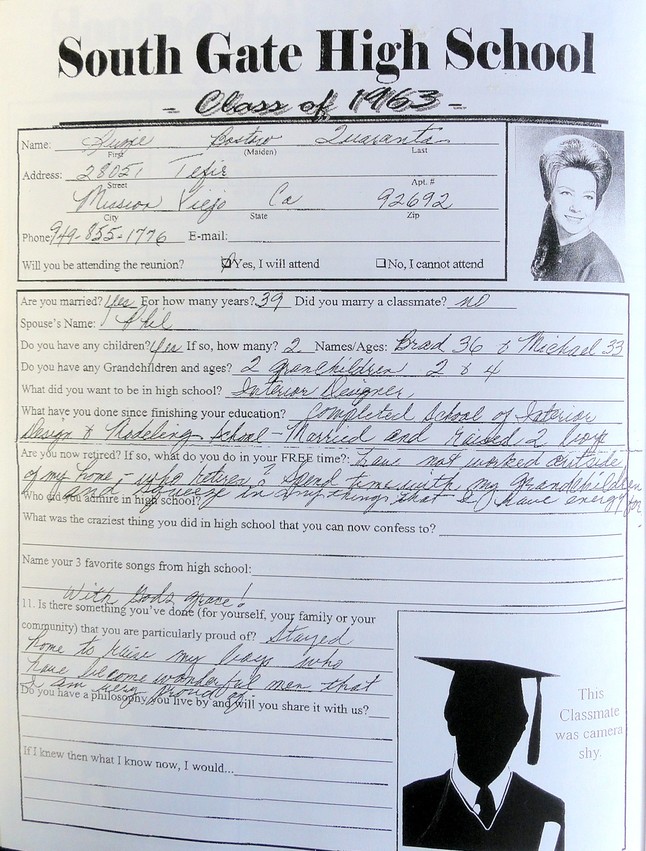 South Gate High School
- Class of 1963 -
Name: Quaranta
First (Maiden) Last
Address: 28051
Street Apt. #
Mission Viejo Ca 92692
City State Zip
Phone: 949-855-1776 E-mail:
Will you be attending the reunion? Yes, I will attend No, I cannot attend
Are you married? Yes For how many years? 39 Did you marry a classmate? no
Spouse's Name: Phil
Do you have any children? Yes If so, how many? 2 Names/Ages: Brad 36 & Michael 33
Do you have any Grandchildren and ages? 2 granchildren 2 & 4
What did you want to be in high school? Interior Designer
What have you done since finishing your education? Completed School of Interior
Design & Modeling School - Married and raised 2 boys
Are you now retired? If so, what do you do in your FREE time?: I have not worked outside
of my home - who retires? Spend time with my grandchildren
Who did you admire in high school?
and squeeze in anythings that I have energy for
What was the craziest thing you did in high school that you can now confess to?
Name your 3 favorite songs from high school:
With Gods grace!
11. Is there something you've done (for yourself, your family or your
community) that you are particularly proud of? Stayed
home to raise my boys who
have become wonderful men that
I am very proud of.
Do you have a philosophy you live by and will you share it with us?
If I knew then what I know now, I would...
This
Classmate
was camera
shy.